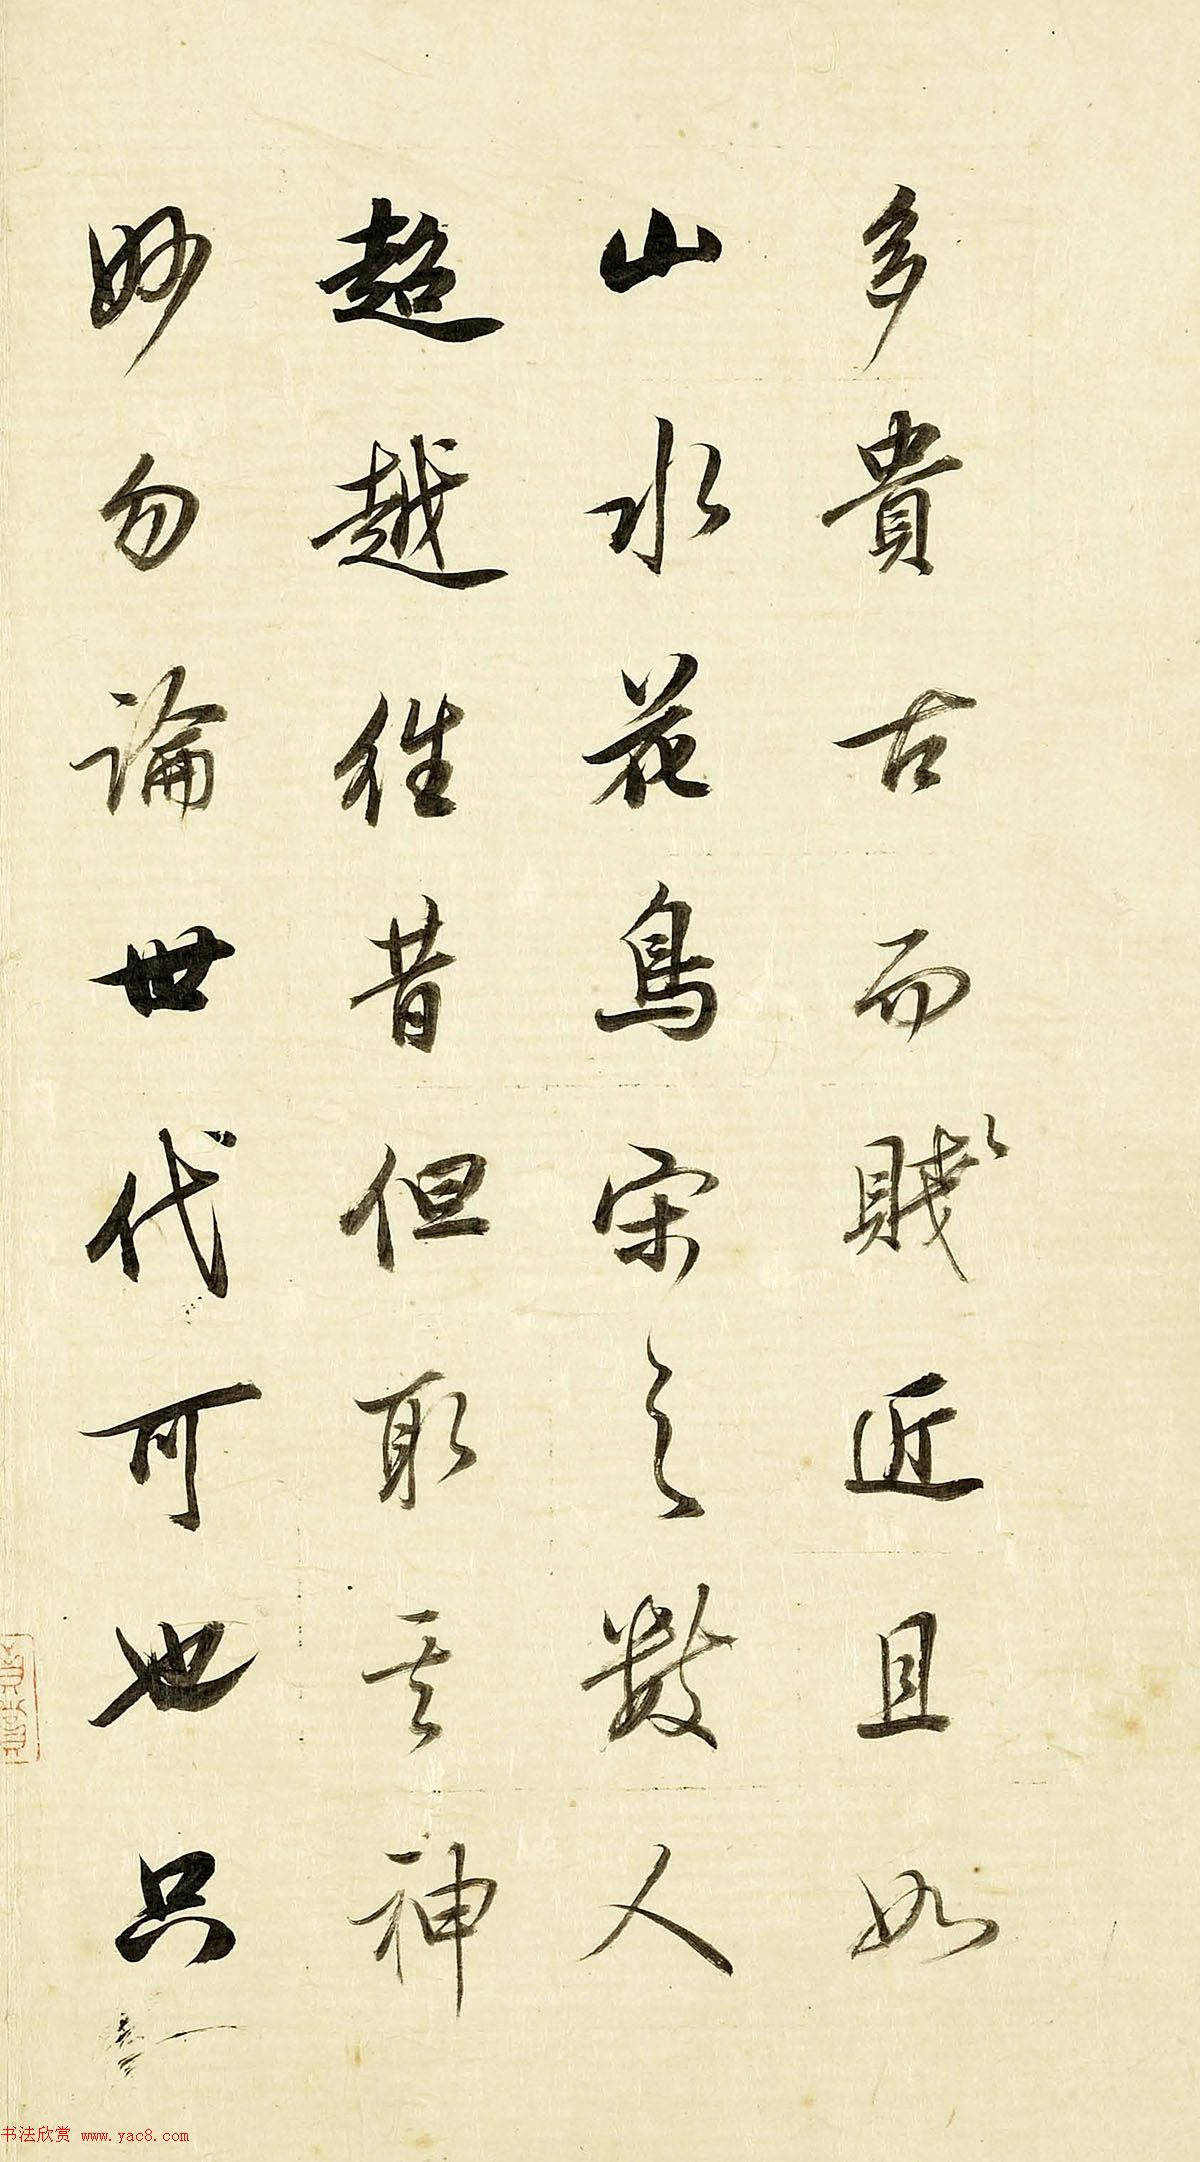 多貴古而賤近且如
山水花鳥宋之數人
超越往昔但取其神
妙勿論世代可也只
书法欣赏 www.yac8.com